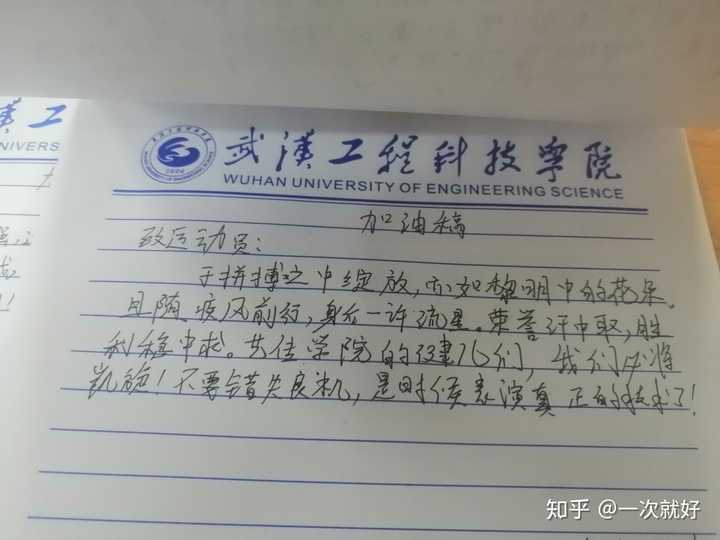 武汉工程科技学院
WUHAN UNIVERSITY OF ENGINEERING SCIENCE
加油稿
致运动员：
于拼搏之中绽放，亦如黎明中的花朵。
且随疾风前行，身后一许流星。荣誉汗中取，胜
利稳中求。共佳学院的健儿们，我们必将
凯旋！不要错失良机，是时候表演真正的技术了！
汉工
NIVERS
知乎 @一次就好